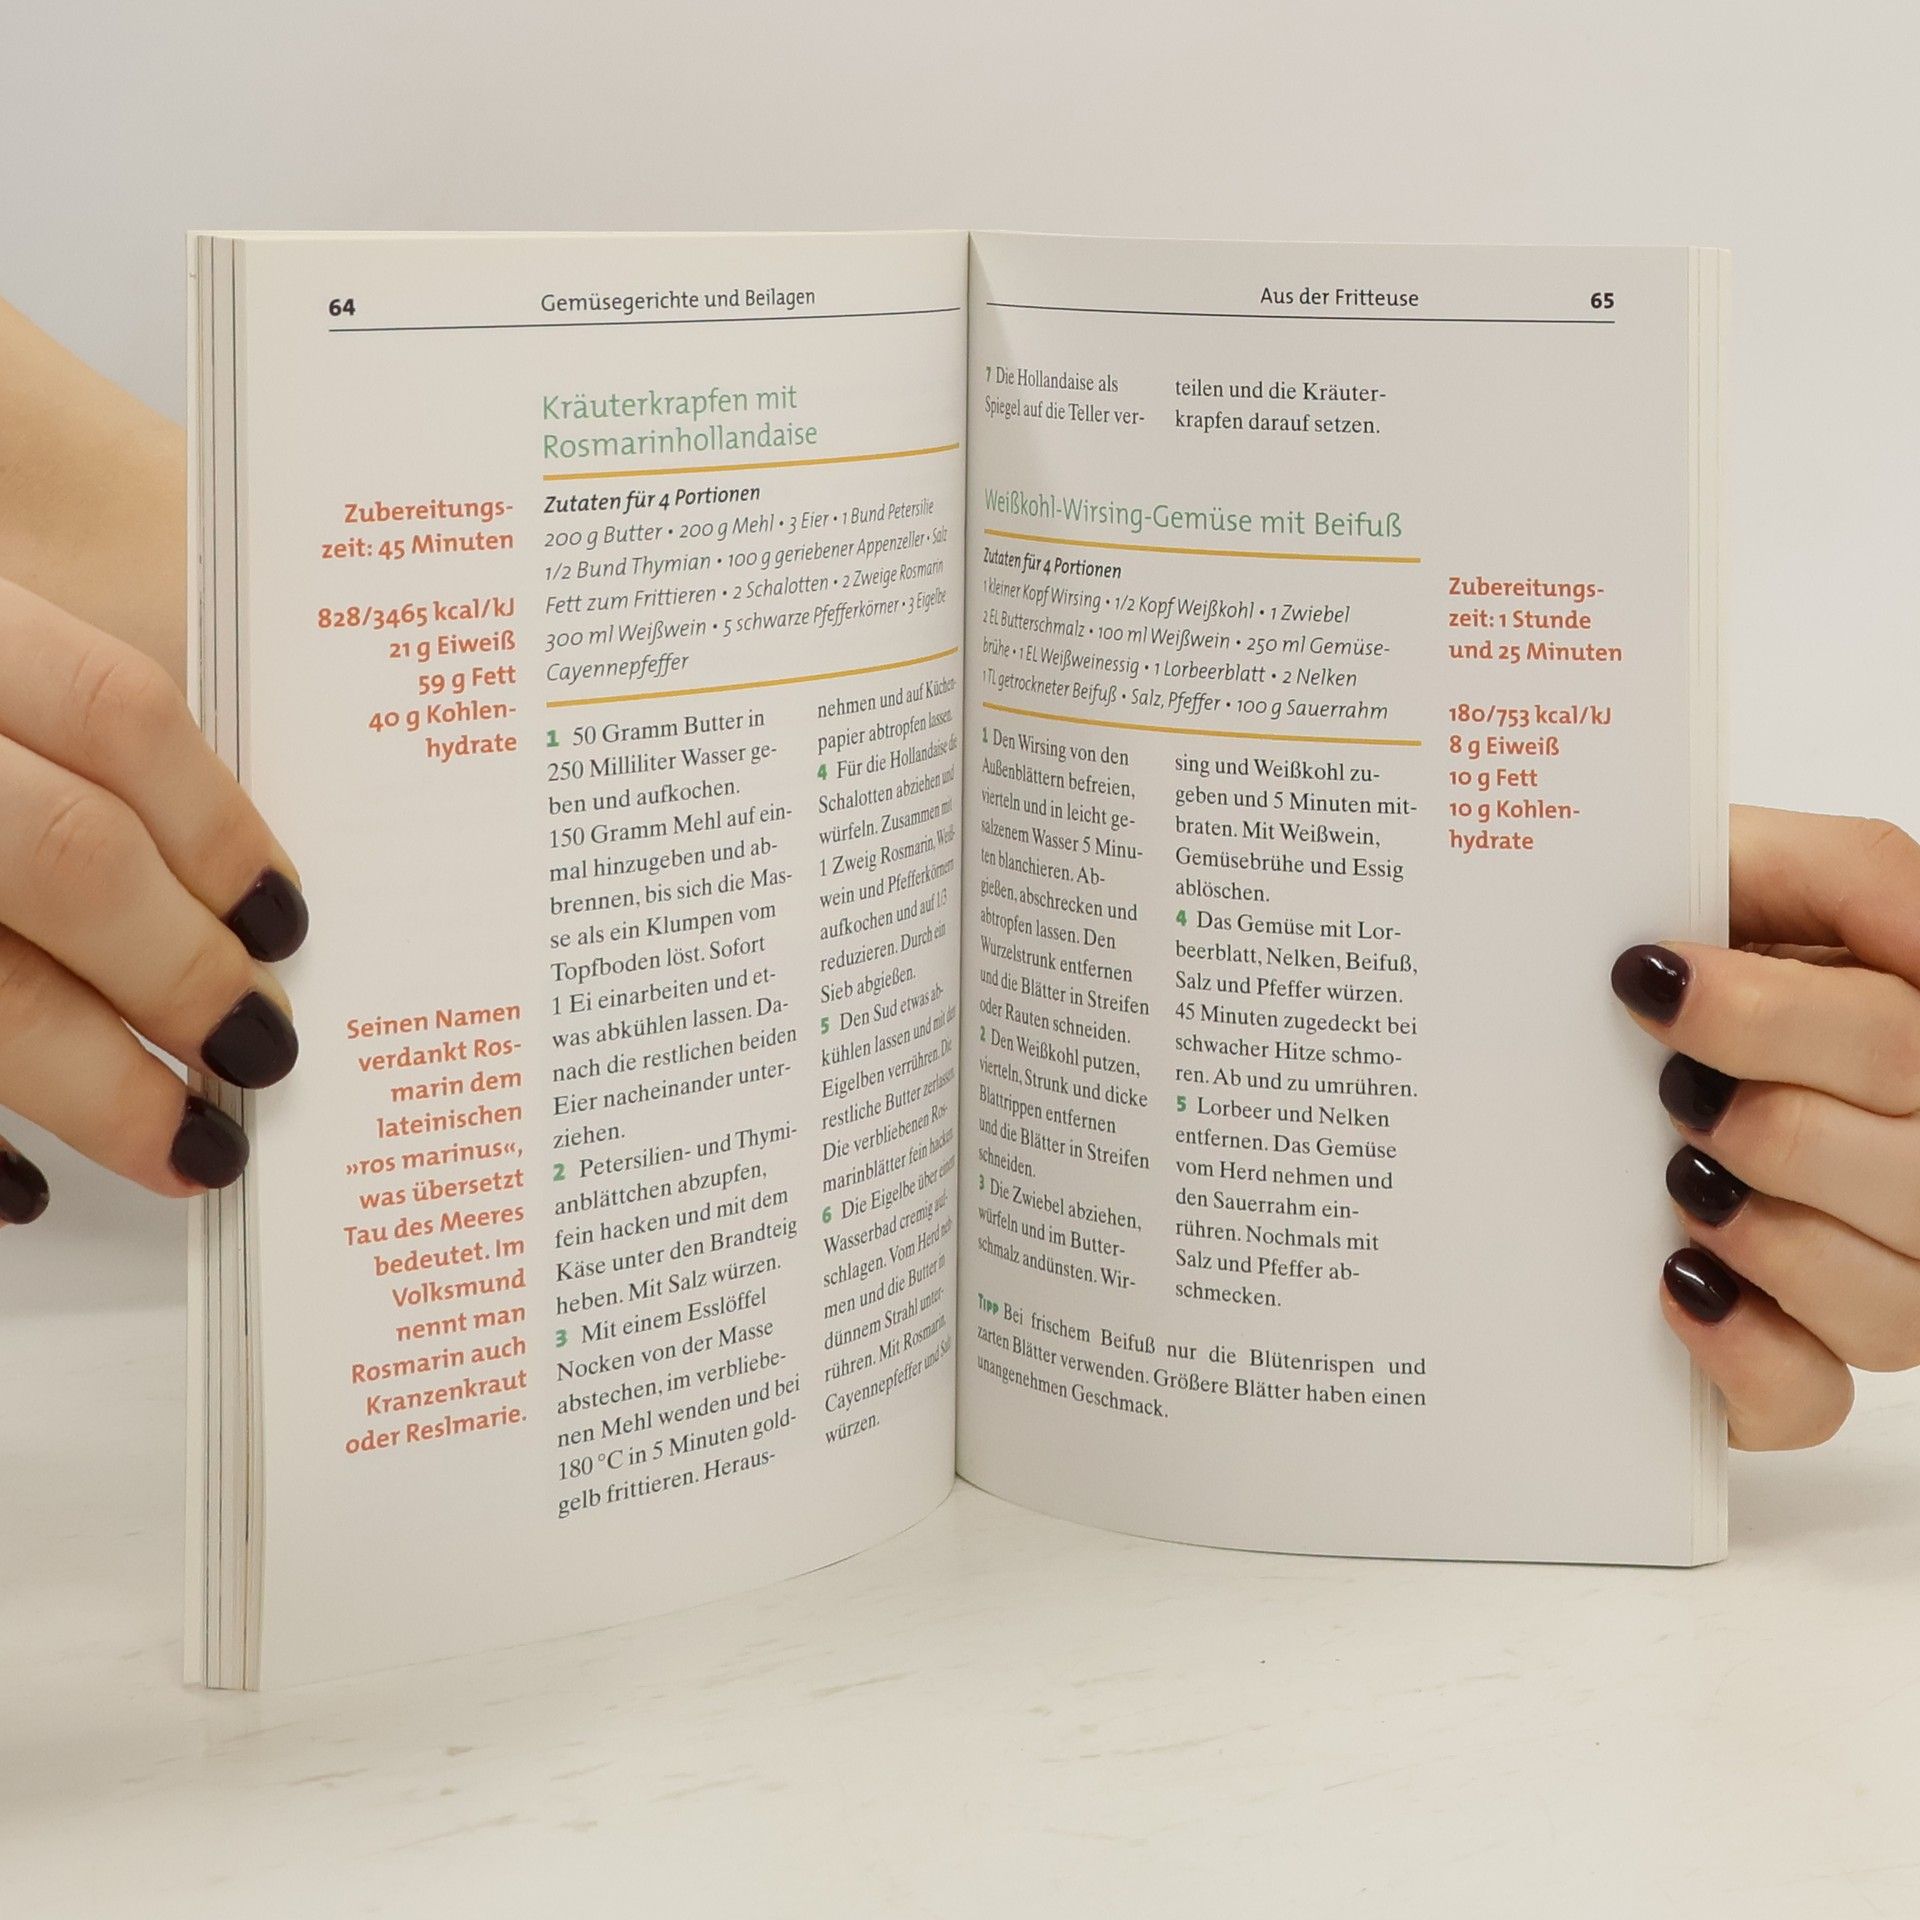 64
Gemüsegerichte und Beilagen
Kräuterkrapfen mit
Rosmarinhollandaise
Zubereitungs-
zeit: 45 Minuten
828/3465 kcal/kJ
21 g Eiweiß
59 g Fett
40 g Kohlen-
hydrate
Seinen Namen
verdankt Ros-
marin dem
lateinischen
»ros marinus«,
was übersetzt
Tau des Meeres
bedeutet. Im
Volksmund
nennt man
Rosmarin auch
Kranzenkraut
oder Reslmarie.
Zutaten für 4 Portionen
200 g Butter • 200 g Mehl • 3 Eier • 1 Bund Petersilie
1/2 Bund Thymian • 100 g geriebener Appenzeller • Salz
Fett zum Frittieren • 2 Schalotten • 2 Zweige Rosmarin
300 ml Weißwein • 5 schwarze Pfefferkörner • 3 Eigelbe
Cayennepfeffer
1 50 Gramm Butter in
250 Milliliter Wasser ge-
ben und aufkochen.
150 Gramm Mehl auf ein-
mal hinzugeben und ab-
brennen, bis sich die Mas-
se als ein Klumpen vom
Topfboden löst. Sofort
1 Ei einarbeiten und et-
was abkühlen lassen. Da-
nach die restlichen beiden
Eier nacheinander unter-
ziehen.
2 Petersilien- und Thymi-
anblättchen abzupfen,
fein hacken und mit dem
Käse unter den Brandteig
heben. Mit Salz würzen.
3 Mit einem Esslöffel
Nocken von der Masse
abstechen, im verbliebe-
nen Mehl wenden und bei
180 °C in 5 Minuten gold-
gelb frittieren. Heraus-
nehmen und auf Küchen-
papier abtropfen lassen.
4 Für die Hollandaise die
Schalotten abziehen und
würfeln. Zusammen mit
1 Zweig Rosmarin, Weiß-
wein und Pfefferkörnern
aufkochen und auf 1/3
reduzieren. Durch ein
Sieb abgießen.
5 Den Sud etwas ab-
kühlen lassen und mit den
Eigelben verrühren. Die
restliche Butter zerlassen.
Die verbliebenen Ros-
marinblätter fein hacken
6 Die Eigelbe über einem
Wasserbad cremig auf-
schlagen. Vom Herd neh-
men und die Butter in
dünnem Strahl unter-
rühren. Mit Rosmarin,
Cayennepfeffer und Salz
würzen.
Aus der Fritteuse
65
7 Die Hollandaise als
Spiegel auf die Teller ver-
teilen und die Kräuter-
krapfen darauf setzen.
Weißkohl-Wirsing-Gemüse mit Beifuß
Zutaten für 4 Portionen
1 kleiner Kopf Wirsing • 1/2 Kopf Weißkohl • 1 Zwiebel
2 EL Butterschmalz • 100 ml Weißwein • 250 ml Gemüse-
brühe • 1 EL Weißweinessig • 1 Lorbeerblatt • 2 Nelken
1 TL getrockneter Beifuß • Salz, Pfeffer • 100 g Sauerrahm
Zubereitungs-
zeit: 1 Stunde
und 25 Minuten
180/753 kcal/kJ
8 g Eiweiß
10 g Fett
10 g Kohlen-
hydrate
1 Den Wirsing von den
Außenblättern befreien,
vierteln und in leicht ge-
salzenem Wasser 5 Minu-
ten blanchieren. Ab-
gießen, abschrecken und
abtropfen lassen. Den
Wurzelstrunk entfernen
und die Blätter in Streifen
oder Rauten schneiden.
2 Den Weißkohl putzen,
vierteln, Strunk und dicke
Blattrippen entfernen
und die Blätter in Streifen
schneiden.
3 Die Zwiebel abziehen,
würfeln und im Butter-
schmalz andünsten. Wir-
sing und Weißkohl zu-
geben und 5 Minuten mit-
braten. Mit Weißwein,
Gemüsebrühe und Essig
ablöschen.
4 Das Gemüse mit Lor-
beerblatt, Nelken, Beifuß,
Salz und Pfeffer würzen.
45 Minuten zugedeckt bei
schwacher Hitze schmo-
ren. Ab und zu umrühren.
5 Lorbeer und Nelken
entfernen. Das Gemüse
vom Herd nehmen und
den Sauerrahm ein-
rühren. Nochmals mit
Salz und Pfeffer ab-
schmecken.
TIPP Bei frischem Beifuß nur die Blütenrispen und
zarten Blätter verwenden. Größere Blätter haben einen
unangenehmen Geschmack.